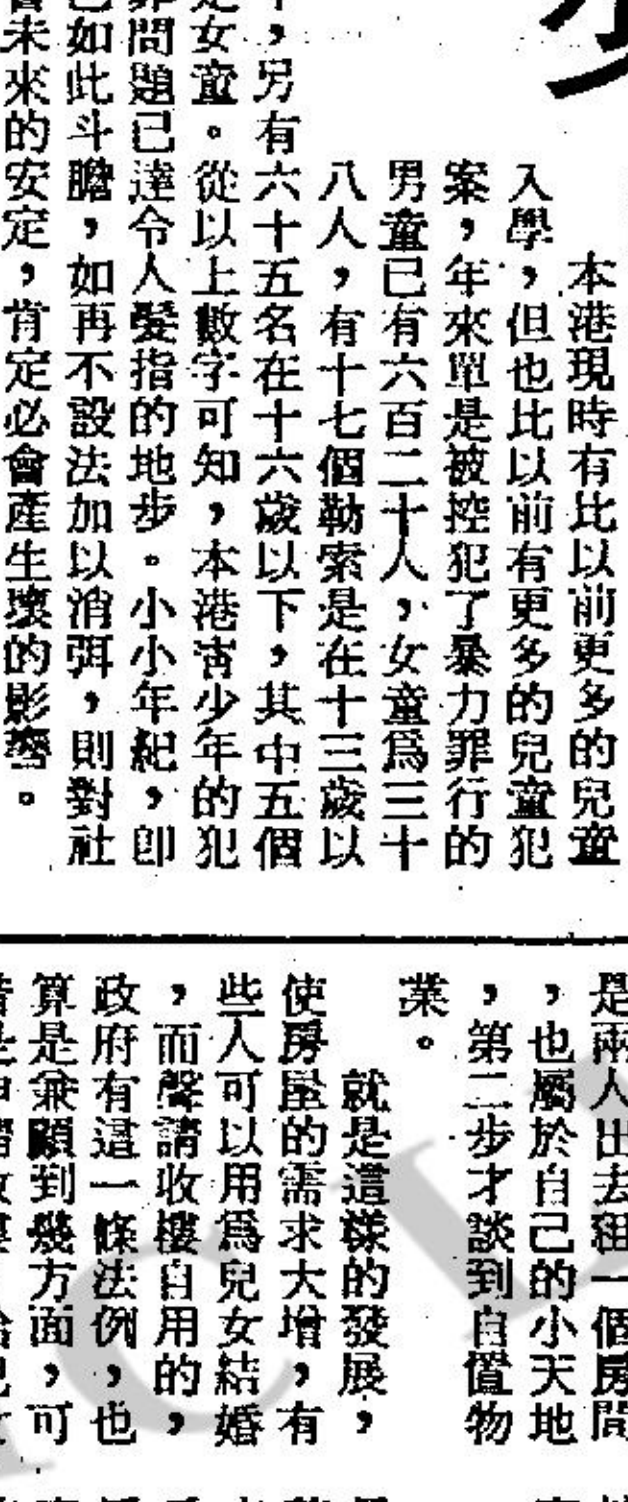 本港現時有比以前更多的兒童
入學,但也比以前有更多的兒童犯
案,年來單是被控犯了暴力罪行的
男童已有六百二十人,女童爲三十
八人,有十七個勒索是在十三歲以
,另有六十五名在十六歲以下,其中五個
是女童。從以上數字可知,本港青少年的犯
罪問題已達令人髮指的地步。小小年紀,卽
已如此斗膽,如再不設法加以消弭,則對社
會未來的安定,肯定必會產生壞的影響。
是兩人出去租一個房間
,也屬於自己的小天地
,第二步才談到自置物
業。
就是這樣的發展,
使房屋的需求大增,有
些人可以用爲兒女結婚
,而聲請收樓自用的,
政府有這一條法例,也
算是兼顧到幾方面,可